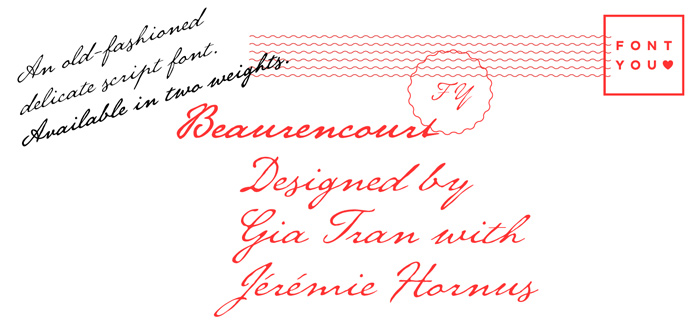 An old-fashioned
delicate script font.
Available in two weights.
FONT
YOU♥
FY
Beaurencourt
Designed by
Gia Tran with
Jérémie Hornus